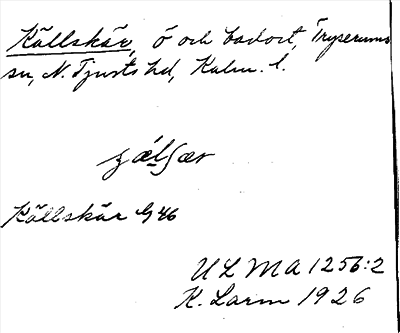 Källskär, ö och badort, Tryserums
sn, N. Tjusts hd, Kalm. l.
Källskär G 46
ULMA 1256:2
K. Larm 1926